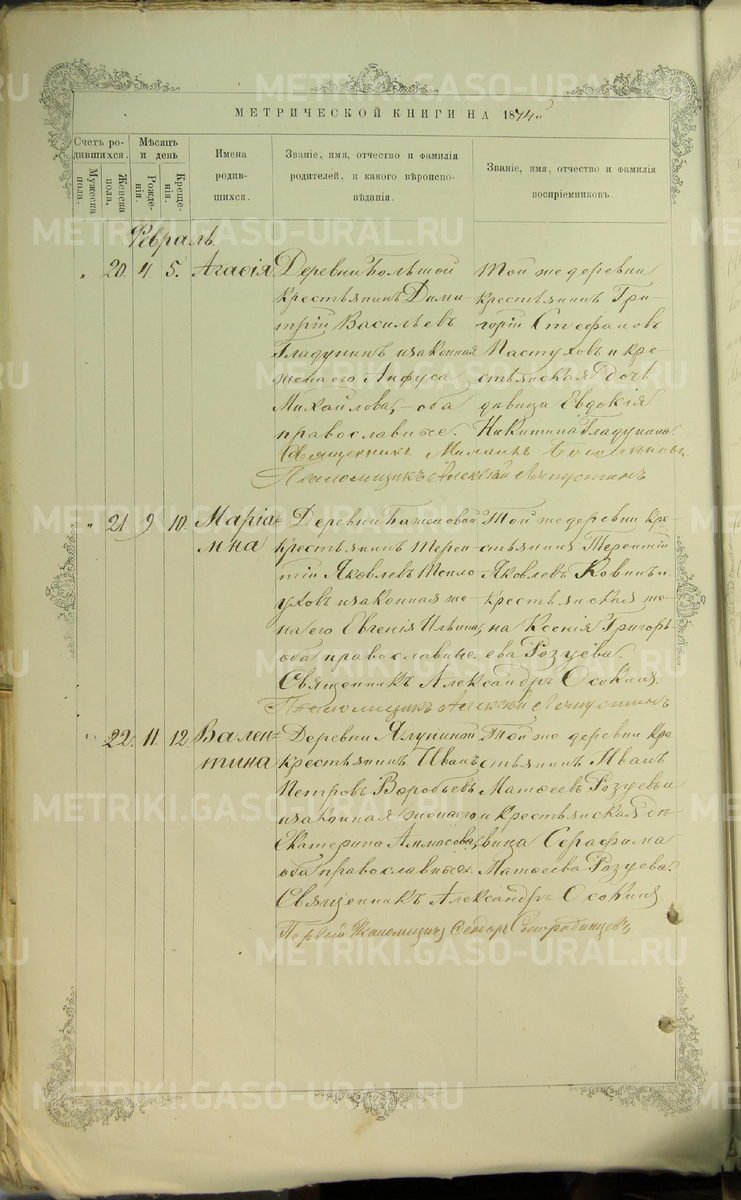 МЕТРИЧЕСКОЙ КНИГИ НА 1874 г.
Счетъ родившихся.
Мужеска пола.
Женска пола.
Мѣсяцъ и день
Рожденія.
Крещенія.
Имена родившихся.
Званіе, имя, отчество и фамилія родителей, и какого вѣроисповѣданія.
Званіе, имя, отчество и фамилія воспріемниковъ.
Февраль.
" 20. 4. 5. Агафія
Деревни Большой
крестьянинъ Дими
трій Васильевъ
Гладунинъ и законная
жена его Анфуса
Михайлова, оба
православные.
Той же деревни
крестьянинъ Гри-
горій Стефановъ
Пастуховъ и кре-
стьянская дочь
дѣвица Евдокія
Никитина Гладунина.
Священникъ
Псаломщикъ Алексѣй
" 21. 9. 10. Маріа-
мна
Деревни Баженовой
крестьянинъ Терен
тій Яковлевъ Тепло
уховъ и законная же-
на его Евгенія Ильина,
оба православные.
Той же деревни кре-
стьянинъ Терентій
Яковлевъ и
крестьянская же-
на Ксенія Григорь-
ева Розуева.
Священникъ Александръ Осокинъ.
Псаломщикъ Алексѣй
" 22. 11. 12. Вален-
тина
Деревни Ялуниной
крестьянинъ Иванъ
Петровъ Воробьевъ
и законная жена его
Екатерина Аммосова,
оба православные.
Той же деревни кре
стьянинъ Иванъ
Матѳеевъ Розуевъ и
крестьянская дѣ-
вица Серафима
Матѳеева Розуева.
Священникъ Александръ Осокинъ
Первый Псаломщикъ Ѳеодоръ
METRIKI.GASO-URAL.RU